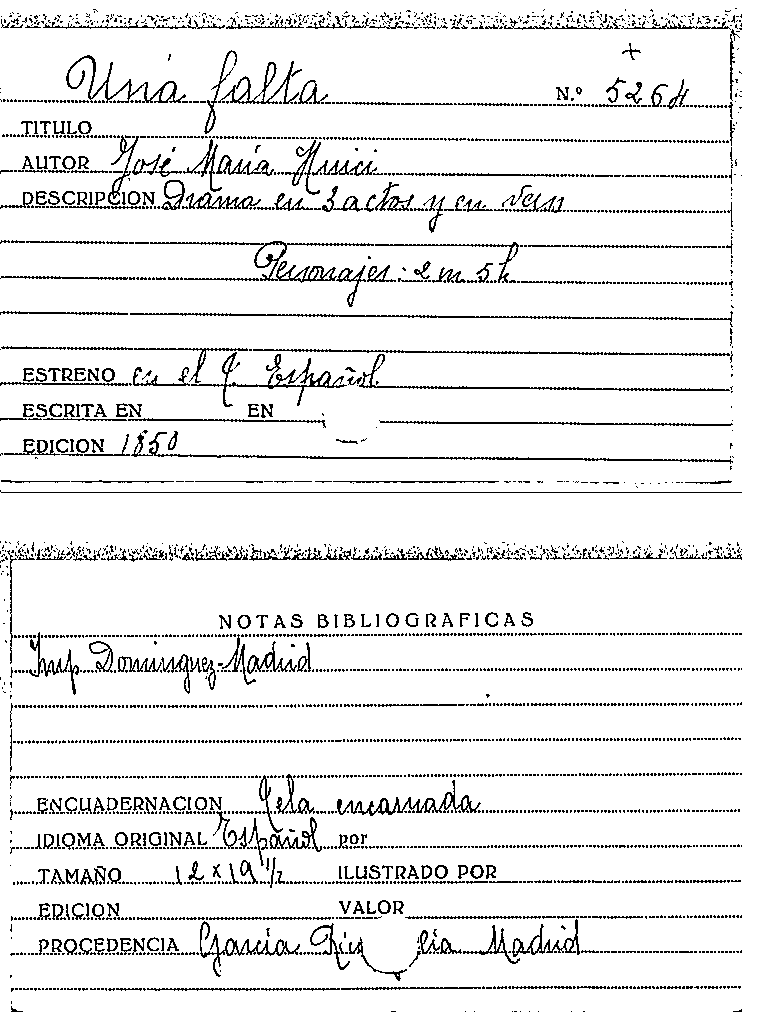 +
Una falta N.º 5264
TITULO
AUTOR José María Huici
DESCRIPCION Drama en 3 actos y en verso
Personajes: 2 m 5 h
ESTRENO en el T. Español
ESCRITA EN EN
EDICION 1850
NOTAS BIBLIOGRAFICAS
Imp Dominguez-Madrid
ENCUADERNACION Tela encarnada
IDIOMA ORIGINAL Español por
TAMAÑO 12 x 19 1/2 ILUSTRADO POR
EDICION VALOR
PROCEDENCIA García Rico Madrid